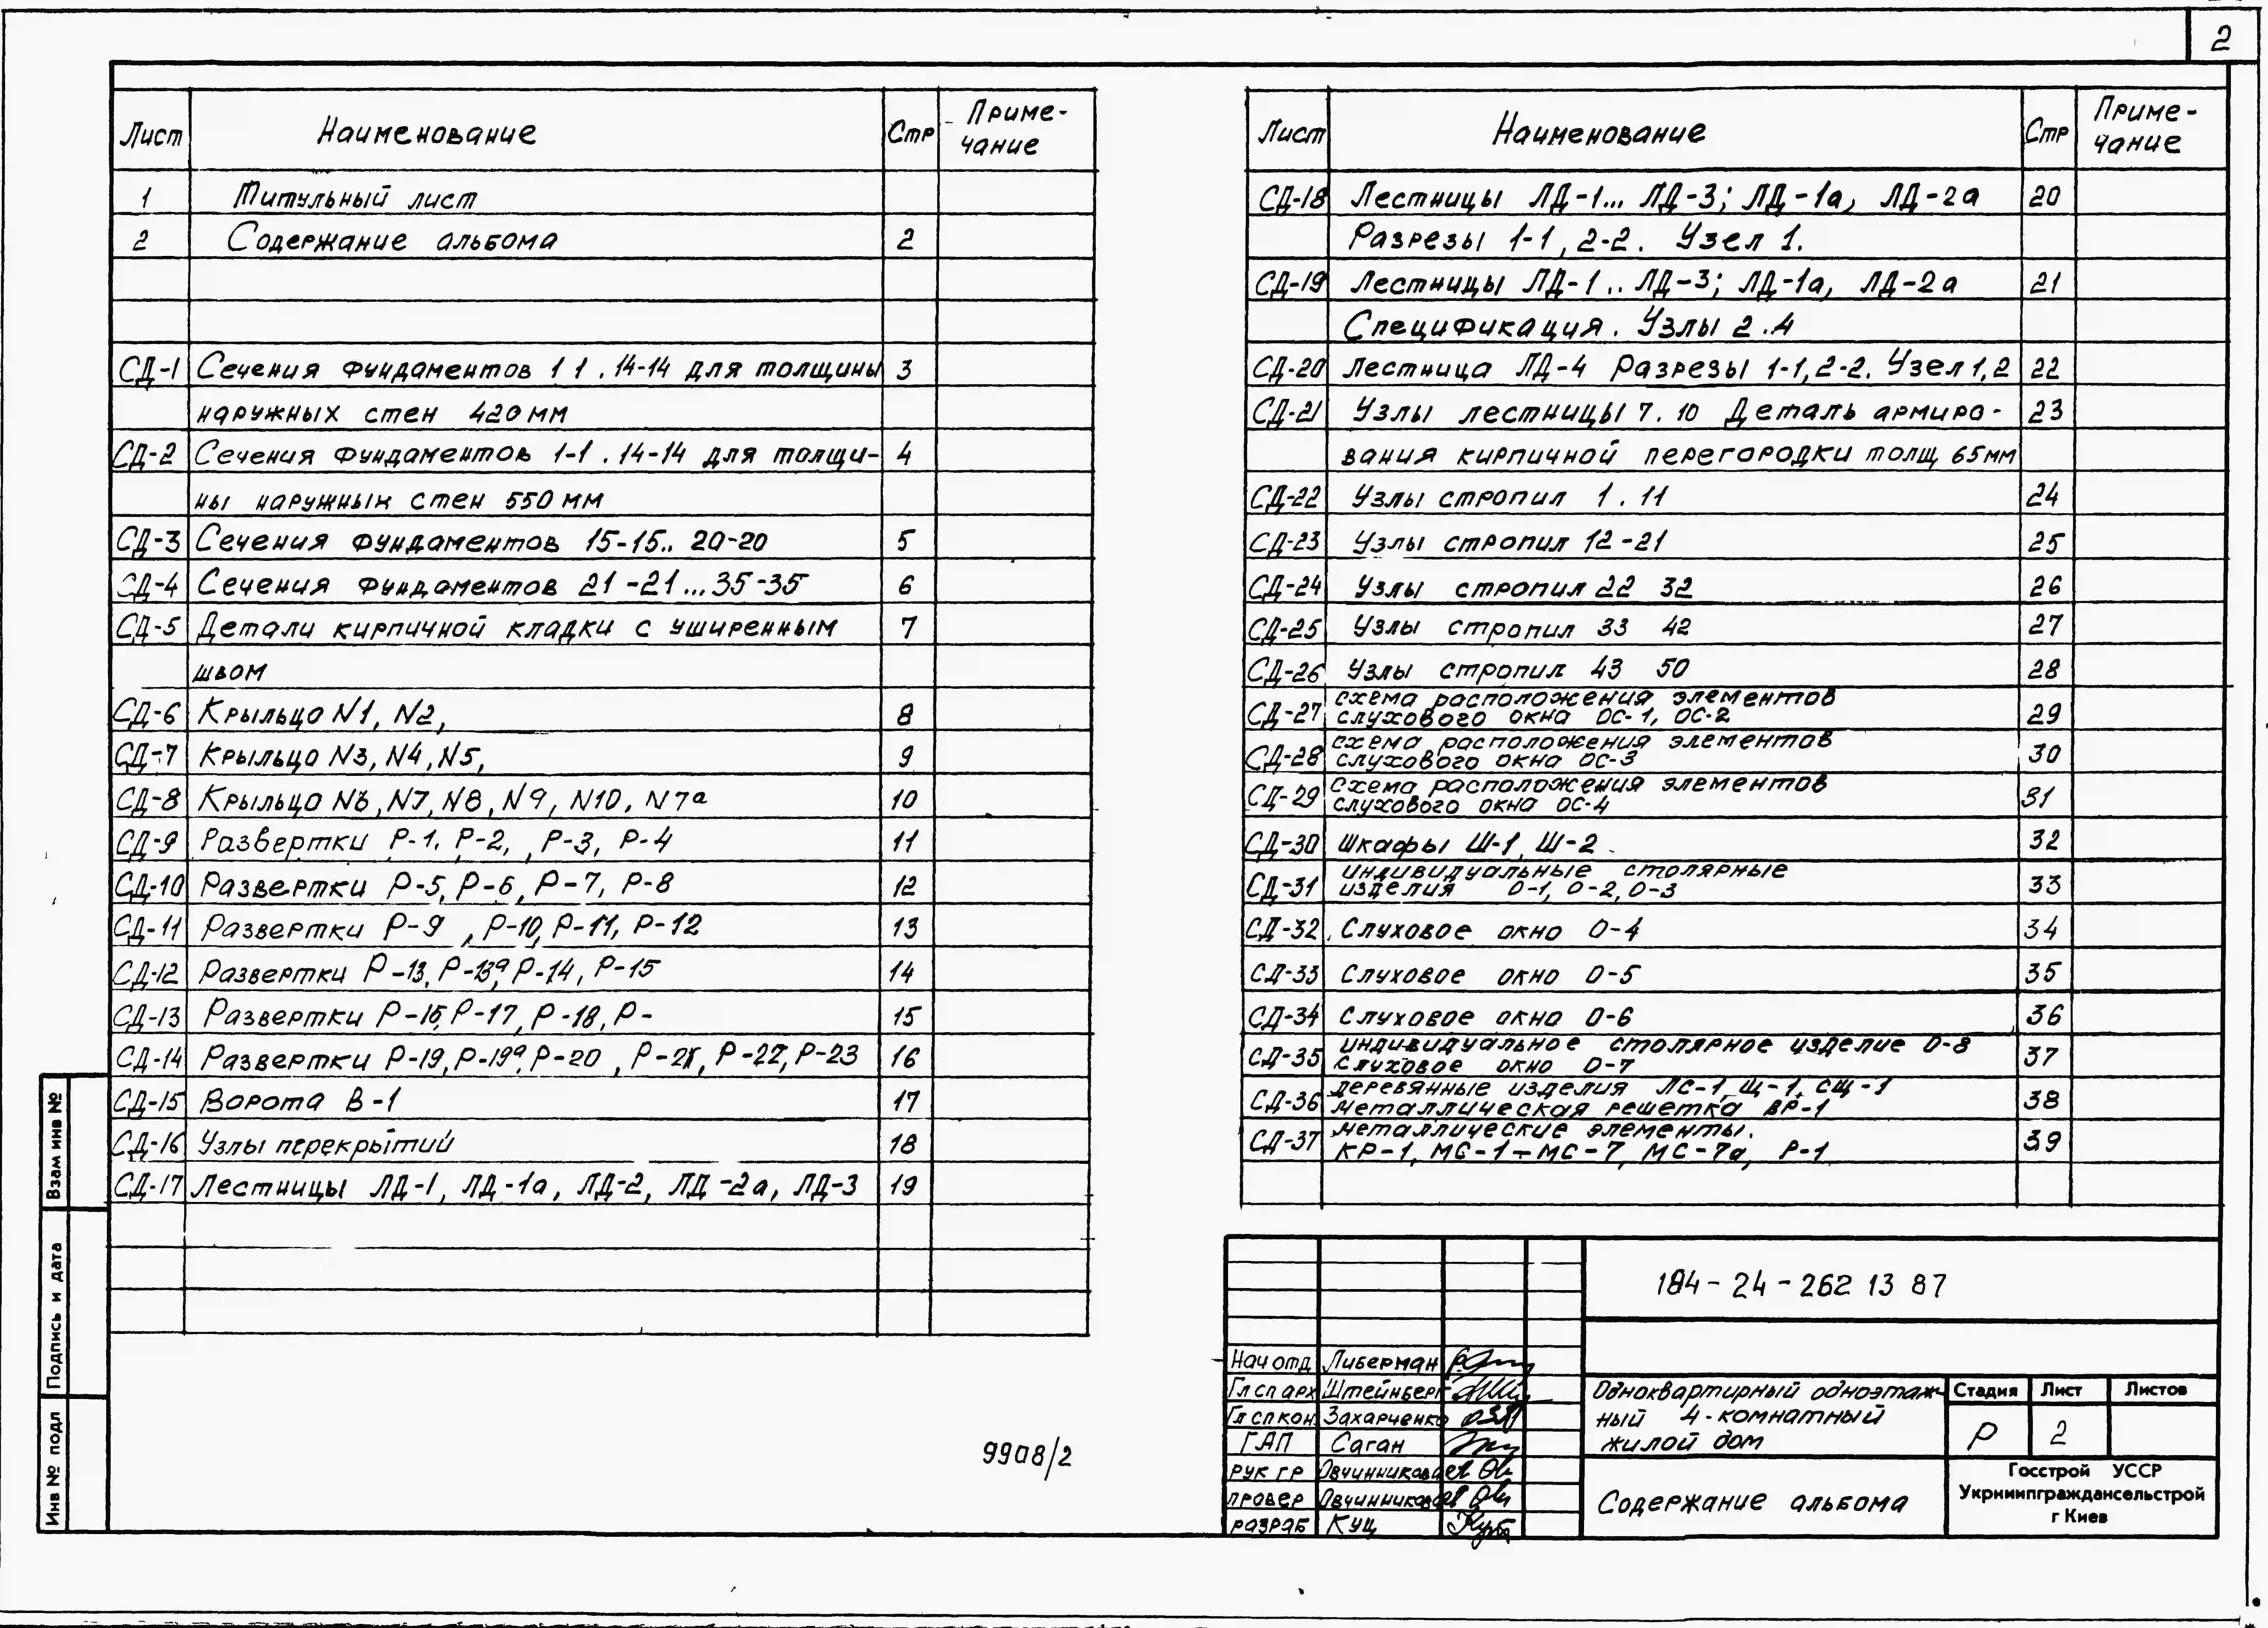 2
Лист Наименование Стр Приме-
чание
1 Титульный лист
2 Содержание альбома 2
СД-1 Сечения фундаментов 1 1 . 14-14 для толщины 3
наружных стен 420 мм
СД-2 Сечения фундаментов 1-1 . 14-14 для толщи- 4
ны наружных стен 550 мм
СД-3 Сечения фундаментов 15-15.. 20-20 5
СД-4 Сечения фундаментов 21-21...35-35 6
СД-5 Детали кирпичной кладки с уширенным 7
швом
СД-6 Крыльцо N1, N2, 8
СД-7 Крыльцо N3, N4, N5, 9
СД-8 Крыльцо N6, N7, N8, N9, N10, N7а 10
СД-9 Развертки Р-1, Р-2, , Р-3, Р-4 11
СД-10 Развертки Р-5, Р-6, Р-7, Р-8 12
СД-11 Развертки Р-9 , Р-10, Р-11, Р-12 13
СД-12 Развертки Р-13, Р-13а, Р-14, Р-15 14
СД-13 Развертки Р-16, Р-17, Р-18, Р- 15
СД-14 Развертки Р-19, Р-19а, Р-20 , Р-21, Р-22, Р-23 16
СД-15 Ворота В-1 17
СД-16 Узлы перекрытий 18
СД-17 Лестницы ЛД-1, ЛД-1а, ЛД-2, ЛД-2а, ЛД-3 19
Лист Наименование Стр Приме-
чание
СД-18 Лестницы ЛД-1... ЛД-3; ЛД-1а, ЛД-2а 20
Разрезы 1-1, 2-2. Узел 1.
СД-19 Лестницы ЛД-1.. ЛД-3; ЛД-1а, ЛД-2а 21
Спецификация. Узлы 2.4
СД-20 Лестница ЛД-4 Разрезы 1-1, 2-2. Узел 1, 2 22
СД-21 Узлы лестницы 7. 10 Деталь армиро- 23
вания кирпичной перегородки толщ 65мм
СД-22 Узлы стропил 1 . 11 24
СД-23 Узлы стропил 12-21 25
СД-24 Узлы стропил 22 32 26
СД-25 Узлы стропил 33 42 27
СД-26 Узлы стропил 43 50 28
СД-27 схема расположения элементов
слухового окна ОС-1, ОС-2 29
СД-28 схема расположения элементов
слухового окна ОС-3 30
СД-29 Схема расположения элементов
слухового окна ОС-4 31
СД-30 Шкафы Ш-1, Ш-2 32
СД-31 индивидуальные столярные
изделия О-1, О-2, О-3 33
СД-32 Слуховое окно О-4 34
СД-33 Слуховое окно О-5 35
СД-34 Слуховое окно О-6 36
СД-35 индивидуальное столярное изделие О-8
Слуховое окно О-7 37
СД-36 деревянные изделия ЛС-1, Щ-1, СЩ-1
металлическая решетка ВР-1 38
СД-37 металлические элементы.
КР-1, МС-1÷МС-7, МС-7а, Р-1 39
Взам инв №
Подпись и дата
Инв № подл
9908/2
184-24-262 13 87
Нач отд Либерман
Гл сп арх Штейнберг
Гл сп кон Захарченко
ГАП Саган
рук гр Овчинникова
провер Овчинникова
разраб Куц
Одноквартирный одноэтаж-
ный 4-комнатный
жилой дом
Стадия Лист Листов
Р 2
Содержание альбома
Госстрой УССР
Укрниипграждансельстрой
г Киев